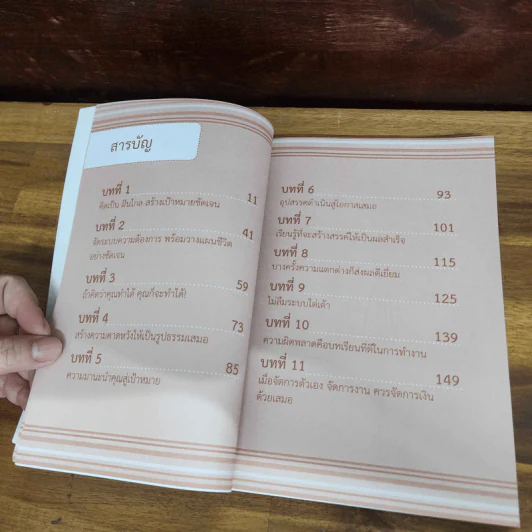 สารบัญ
บทที่ 1 11
คิดเป็น ฝันไกล สร้างเป้าหมายชัดเจน
บทที่ 2 41
จัดระบบความต้องการ พร้อมวางแผนชีวิต
อย่างชัดเจน
บทที่ 3 59
ถ้าคิดว่าคุณทำได้ คุณก็จะทำได้!
บทที่ 4 73
สร้างความคาดหวังให้เป็นรูปธรรมเสมอ
บทที่ 5 85
ความมานะนำคุณสู่เป้าหมาย
บทที่ 6 93
อุปสรรคดำเนินสู่โอกาสเสมอ
บทที่ 7 101
เรียนรู้ที่จะสร้างสรรค์ให้เป็นผลสำเร็จ
บทที่ 8 115
บางครั้งความแตกต่างก็ส่งผลดีเยี่ยม
บทที่ 9 125
ไม่ลืมระบบไต่เต้า
บทที่ 10 139
ความผิดพลาดคือบทเรียนที่ดีในการทำงาน
บทที่ 11 149
เมื่อจัดการตัวเอง จัดการงาน ควรจัดการเงิน
ด้วยเสมอ